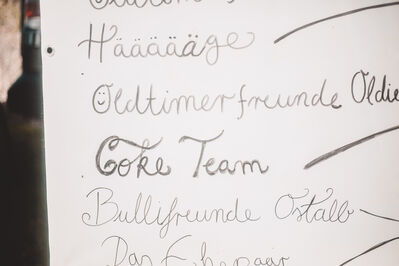 Häääääge
Öldtimerfreunde Oldie
Coke Team
Bullifreunde Ostalb
Das Ehepaar